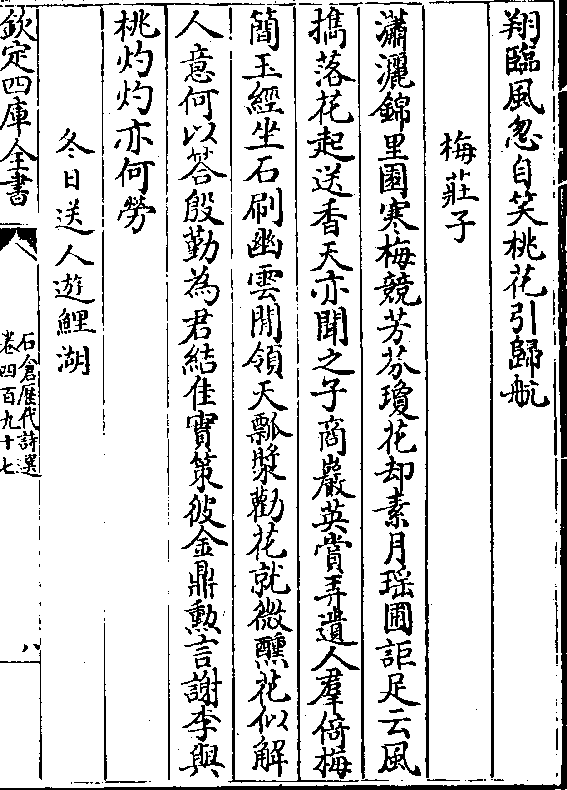 翔臨風忽自笑桃花引歸航
梅莊子
瀟灑錦里園寒梅競芳芬瓊花却素月瑶圃詎足云風
擕落花起送香天亦聞之子商巖英賞弄遺人羣倚梅
簡玉經坐石刷幽雲閒領天瓢漿勸花就微醺花似解
人意何以答殷勤為君結佳實策彼金鼎勲言謝李與
桃灼灼亦何勞
冬日送人遊鯉湖
欽定四庫全書
石倉歷代詩選
卷四百九十七
八